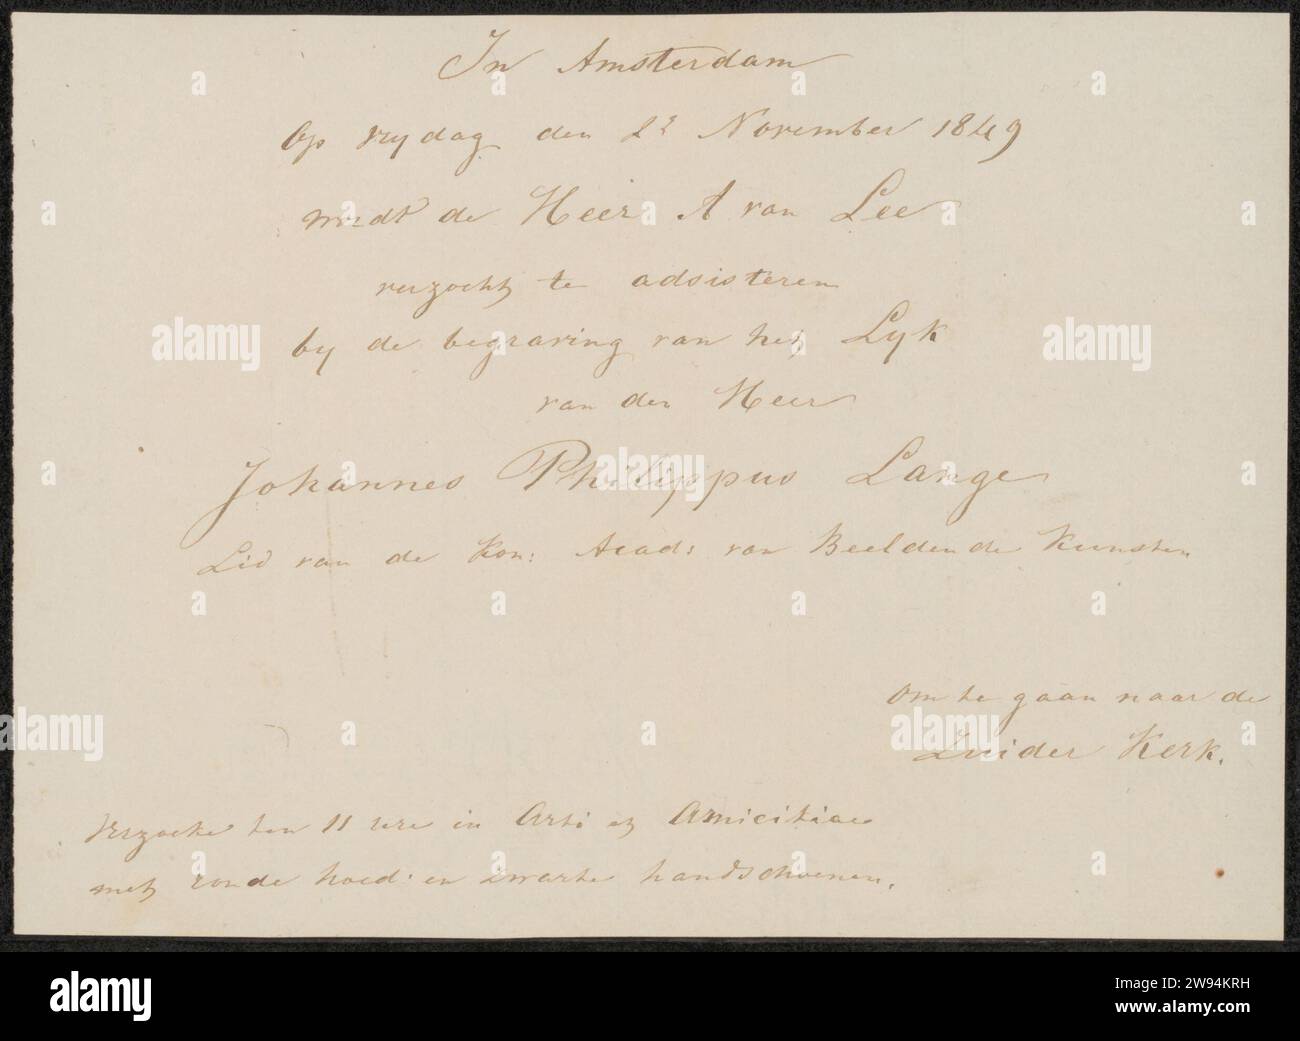 In Amsterdam
Op vrydag den 2e November 1849
wordt de Heer A van Lee
verzocht te adsisteren
by de begraving van het Lyk
van den Heer
Johannes Philippus Lange
Lid van de Kon: Acad: van Beeldende Kunsten
om te gaan naar de
Zuider Kerk.
Verzoeke ten 11 ure in Arti et Amicitiae
met ronde hoed: en zwarte handschoenen.
alamy
Image ID: 2W94KRH
www.alamy.com